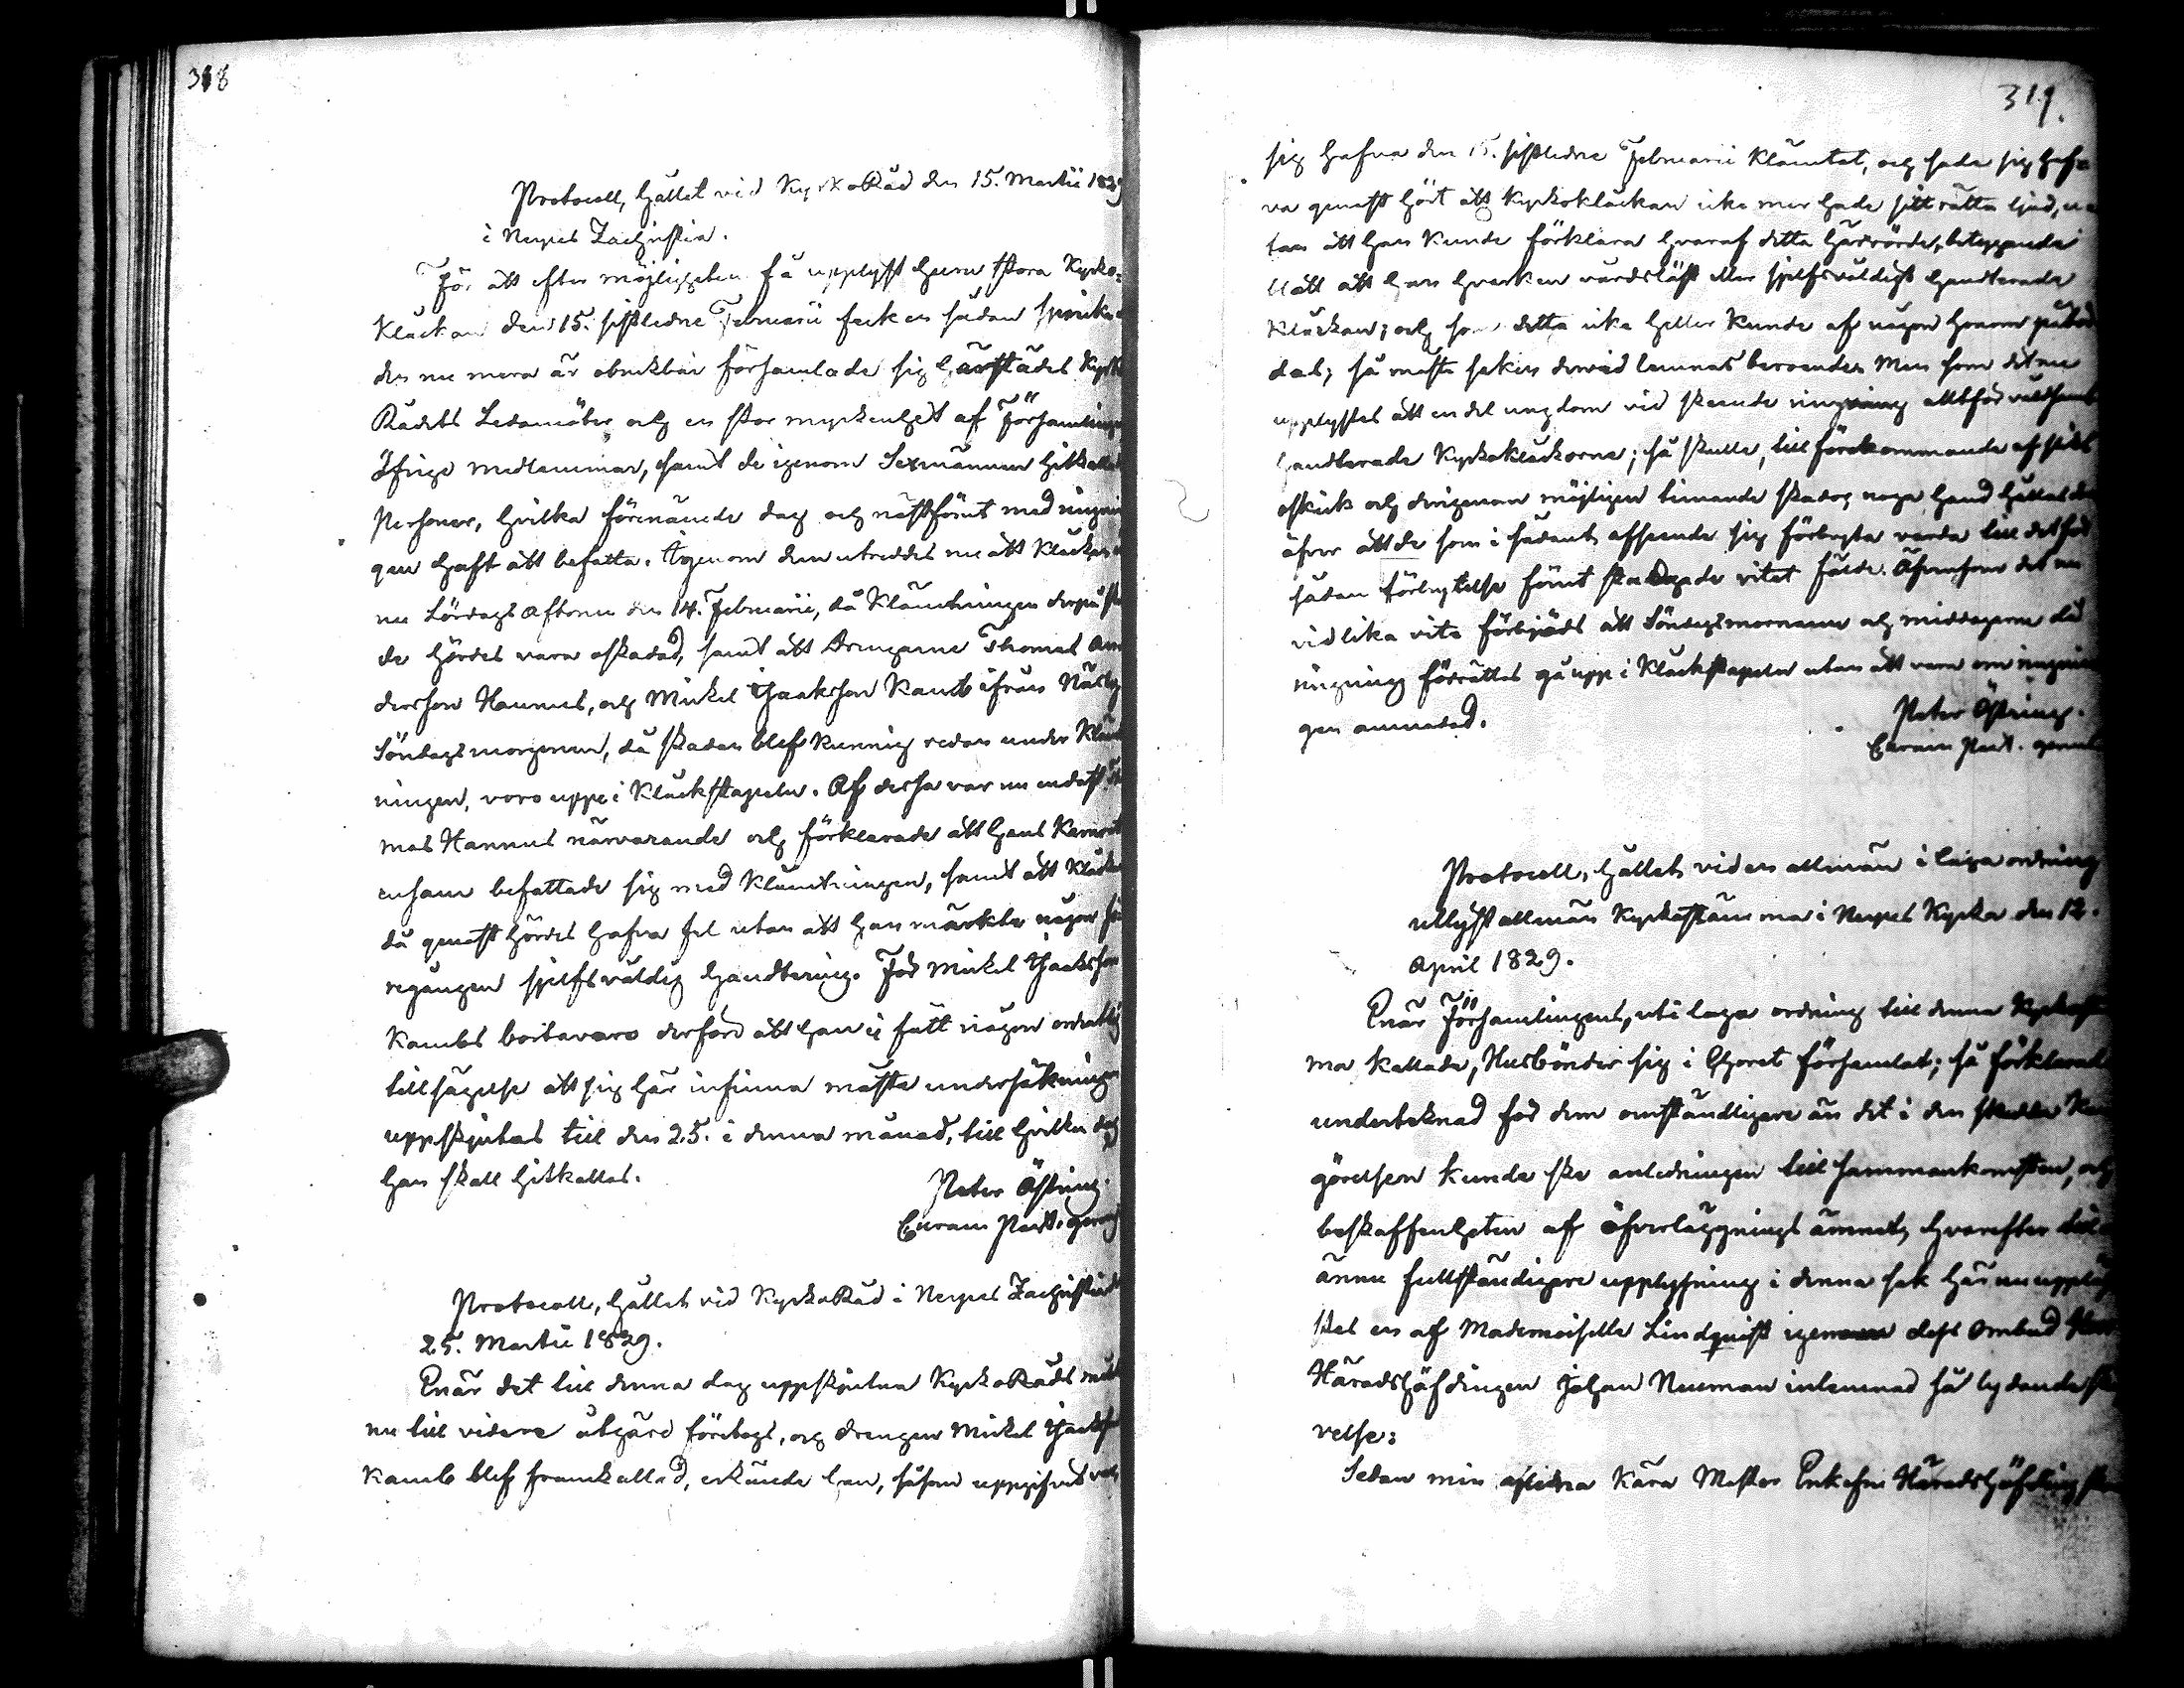 318
Protocoll, hållet vid KyrkoRåd den 15. Martii 1829
i Nerpes Sachristia.
För att efter möjligheten få upplyst huru stora Kyrko-
Klockan den 15. sistledne Februarii feck en sådan
der nu mera är obrukbar församlade sig härstädes Kyrko
Rådets Ledamöter och en stor myckenhet af Församlingens
öfrige medlemmar, samt de igenom Sexmännen hitkallade
Personer, hvilka förenämde dag och näst förut med ringnin
gen haft att befatta. Igenom dem utreddes nu att Klockan än
nu Lördags aftonen den 14. Februarii, då Klämtningen derpå
de hördes vara oskadad, samt att Drengarne Thomas An
dersson Hannus, och Mickel Isaksson Kamb ifrån Näsby
Söndagsmorgonen, då skadan blef kunnig redan under Kläm
ningen, voro uppe i Klockstapeln. Af dessa var nu endast Tho
mas Hannus närvarande och förklarade att hans Kamrat
ensam befattade sig med Klämtningen, samt att Klockan
då genast hördes hafva fel utan att han märkte någon för
regången sjelfsvåldig handtering. För Mickel Isaksson
Kambs bortavaro derföre att han ej fått någon ordentlig
tillsägelse att sig här infinna måste undersökningen
uppskjutas till den 25. i denna månad, till hvilken dag
han skall hitkallas.
Peter Östring.
Curam Past. gerens
Protocoll, hållet vid KyrkoRåd i Nerpes Sachristia d.
25. Martii 1829.
Enär det till denna dag uppskjutna KyrkoRåds mål
nu till videre åtgärd företogs, och drengen Mickel Isaksson
Kamb blef framkallad, erkände han, såsom uppgifvet var,
319.
sig hafva den 15. sistledne Februarii Klämtat, och sade sig haf-
va genast hört att Kyrkoklockan icke mer hade sitt rätta ljud, u-
tan att han kunde förklara hvaraf detta härrörde, betygande
att han hvarken vårdslöst eller sjelfsvåldigt handterade
Klockan; och som detta icke heller kunde af någon honom påbör
das; så måste saken dervid lemnas beroende. Men som det nu
upplystes att en del ungdom vid skeende ringning alltför våldsamt
handterade Kyrkoklockorna; så skulle, till förekommande af slikt
oskick och derigenom möjligen timande skador, noga hand hållas der
öfver att de som i sådant afseende sig förbryta varda till det för
sådan förbrytelse förut stadgade vitet fälde. Äfvensom det nu
vid lika vite förbjöds att Söndagsmornarne och middagarne då
ringning förrättas gå upp i Klockstapeln utan att vara om ringnin
gen anmodad.
Peter Östring.
Curam Past. gerens
Protocoll, hållet vid en allmän i laga ordning
utlyst allmän Kyrkostämma i Nerpes Kyrka den 12.
April 1829.
Enär Församlingens, uti laga ordning till denna Kyrkostäm
ma kallade, Husbönder sig i Choret församlat; så förklarade
undertecknad för dem omständligare än det i den skedda Kun
görelsen kunde ske anledningen till sammankomsten, och
beskaffenheten af öfverläggnings ämnet, hvarefter till
ännu fullständigare upplysning i denna sak här nu upplä
stes en af Mademoiselle Lindqvist igenom dess ombud Herr
Häradshöfdingen Johan Neuman inlemnad så lydande skri
velse:
Sedan min aflidna Kära Moster Enkefru Häradshöfding